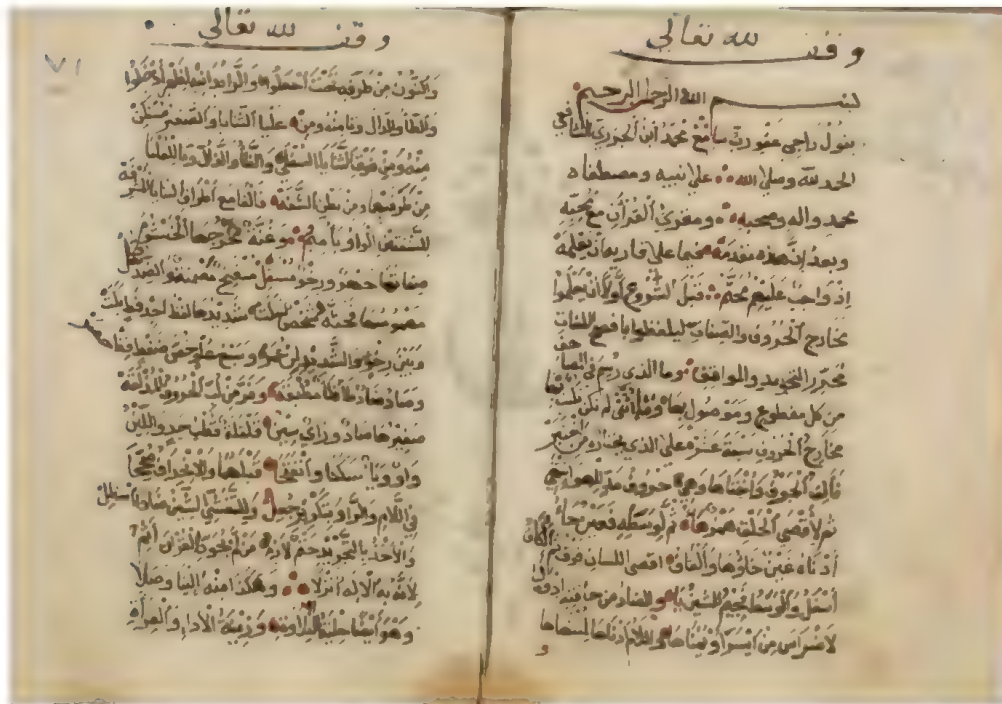 وقف لله تعالى
بسم الله الرحمن الرحيم
يقول راجى عفو رب سامع محمد ابن الجزري الشافعي
الحمد لله وصلى الله على نبيه ومصطفاه
محمد واله وصحبه ومقرئ القرآن مع محبه
وبعد إن هذه مقدمة فيما على قاريه أن يعلمه
إذ واجب عليهم محتم قبل الشروع أولا أن يعلموا
مخارج الحروف والصفات ليلفظوا بافصح اللغات
محررى التجويد والمواقف وما الذى رسم فى المصاحف
من كل مقطوع وموصول بها وتا أنثى لم تكن تكتب بها
مخارج الحروف سبعة عشر على الذى يختاره من اختبر
فألف الجوف وأختاها وهى حروف مد للهواء تنتهى
ثم لأقصى الحلق همز هاء ثم لوسطه فعين حاء
أدناه غين خاؤها والقاف اقصى اللسان فوق ثم الكاف
أسفل والوسط فجيم الشين يا والضاد من حافته إذ وليا
لاضراس من أيسر أو يمناها واللام أدناها لمنتهاها
و
وقف لله تعالى
٧١
والنون من طرفه تحت اجعلوا والرا يدانيه لظهر أدخلوا
والطا والدال وتا منه ومن عليا الثنايا والصفير مستكن
منه ومن فوق الثنايا السفلى والظا والذال وثا للعليا
من طرفيهما ومن بطن الشفه فالفا مع أطراف الثنايا المشرفه
للشفتين الواو باء ميم وغنة مخرجها الخيشوم
صفاتها جهر ورخو مستفل منفتح مصمتة والضد قل
مهموسها فحثه شخص سكت شديدها لفظ أجد قط بكت
وبين رخو والشديد لن عمر وسبع علو خص ضغط قظ حصر
وصاد ضاد طا ظا مطبقه وفر من لب الحروف المذلقه
صفيرها صاد وزاى سين قلقلة قطب جد واللين
واو ويا سكنا وانفتحا قبلهما والانحراف صححا
فى اللام والرا وبتكرير جعل وللتفشى الشين ضادا استطل
والأخذ بالتجويد حتم لازم من لم يجود القرآن آثم
لأنه به الاله انزلا وهكذا منه الينا وصلا
وهو أيضا حلية التلاوة وزينة الأداء والقراءة